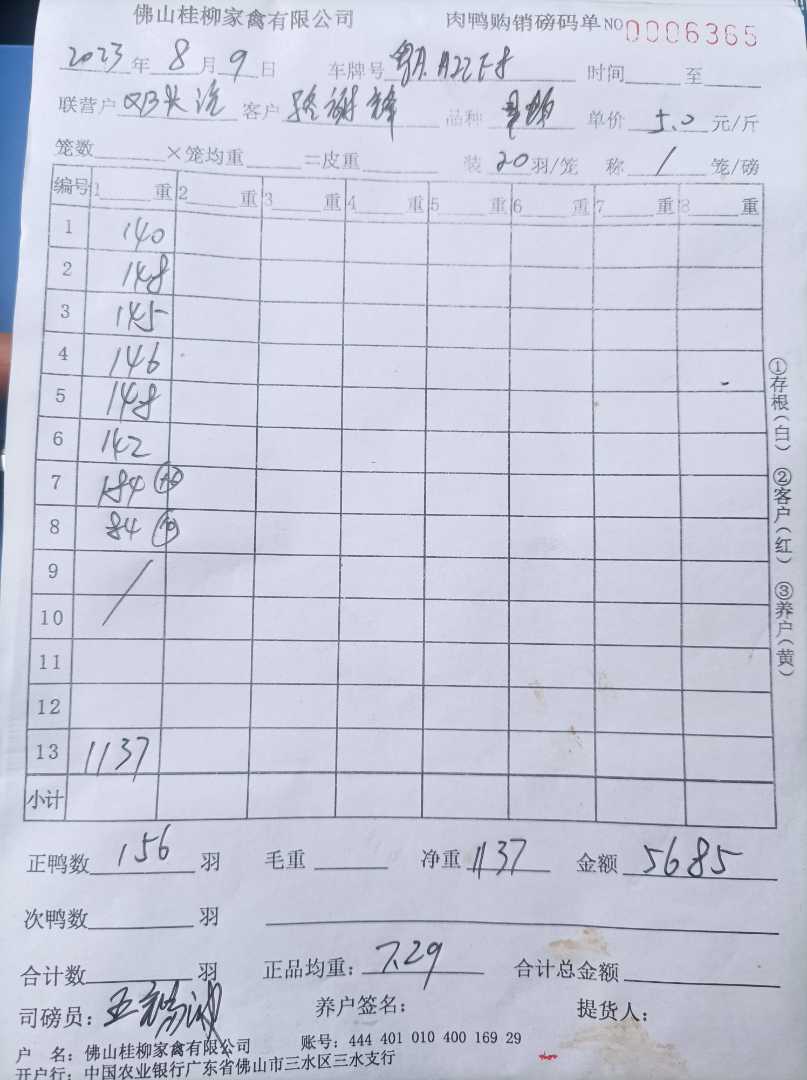 佛山桂柳家禽有限公司 肉鸭购销磅码单 NO 0006365
2023年 8月 9日 车牌号 时间 至
联营户 客户 品种 单价 5.0 元/斤
笼数 ×笼均重 =皮重 装 20 羽/笼 称 1 笼/磅
编号 1 重 2 重 3 重 4 重 5 重 6 重 7 重 8 重
1 140
2 148
3 145
4 146
5 148
6 142
7 184
8 84
9 /
10
11
12
13 1137
小计
正鸭数 156 羽 毛重 净重 1137 金额 5685
次鸭数 羽
合计数 羽 正品均重: 7.29 合计总金额
司磅员: 养户签名: 提货人:
户 名: 佛山桂柳家禽有限公司 账号: 444 401 010 400 169 29
开户行: 中国农业银行广东省佛山市三水区三水支行
①存根(白) ②客户(红) ③养户(黄)